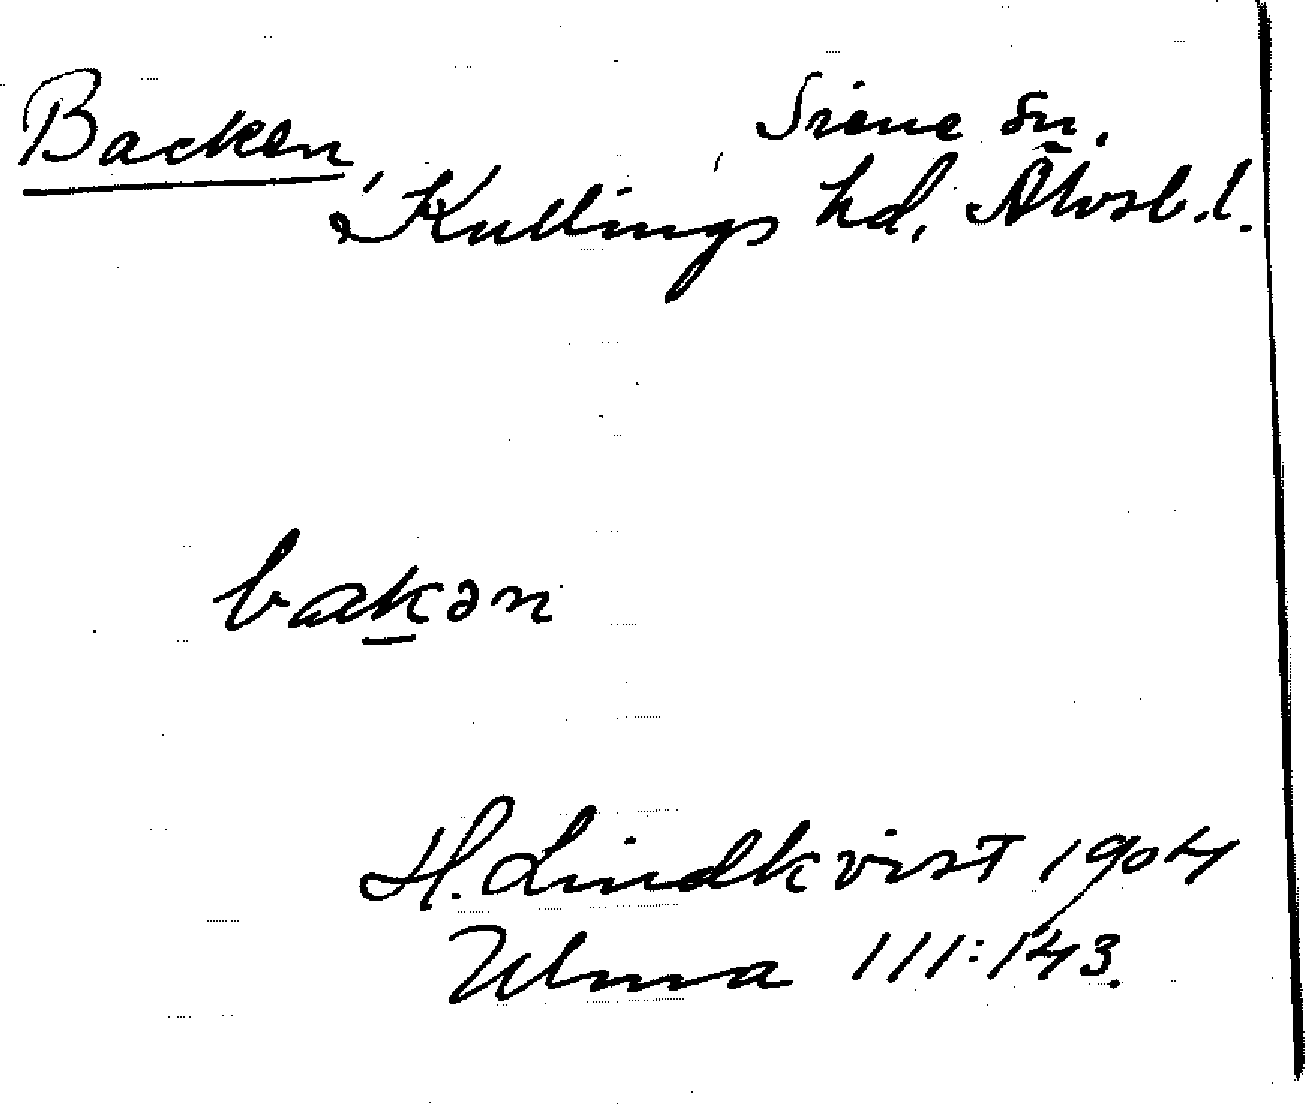 Backen Siene sn,
Kullings hd, Älvsb. l.
bakən
H. Lindkvist 1904
Ulma 111:143.